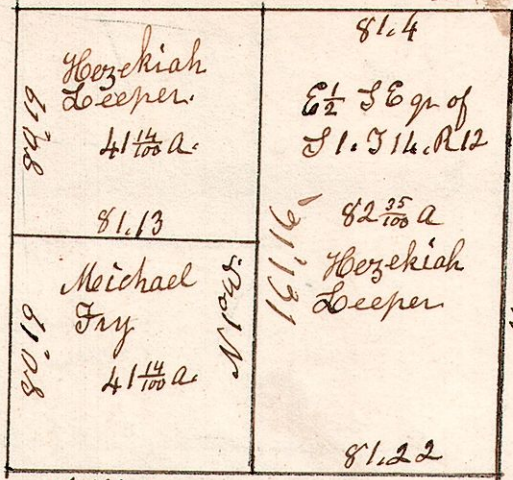 Hezekiah
Leeper.
41 14/100 A.
81.13
Michael
Fry
41 14/100 A.
81.4
E 1/2 S E qr of
S 1. T 14. R 12
82 35/100 A
Hezekiah
Leeper
81.22